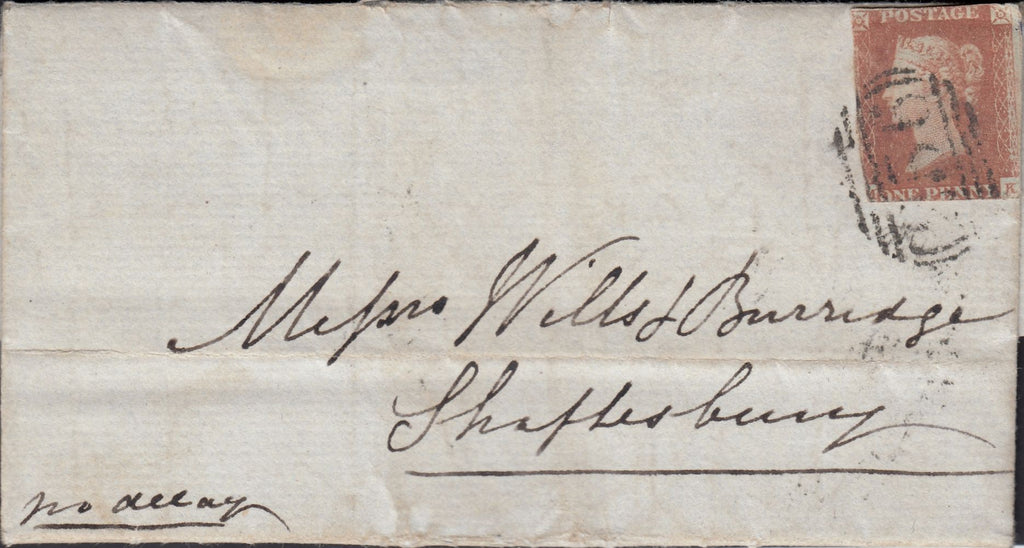 POSTAGE
ONE PENNY
K
Messrs Wills & Burridge
Shaftesbury
no delay